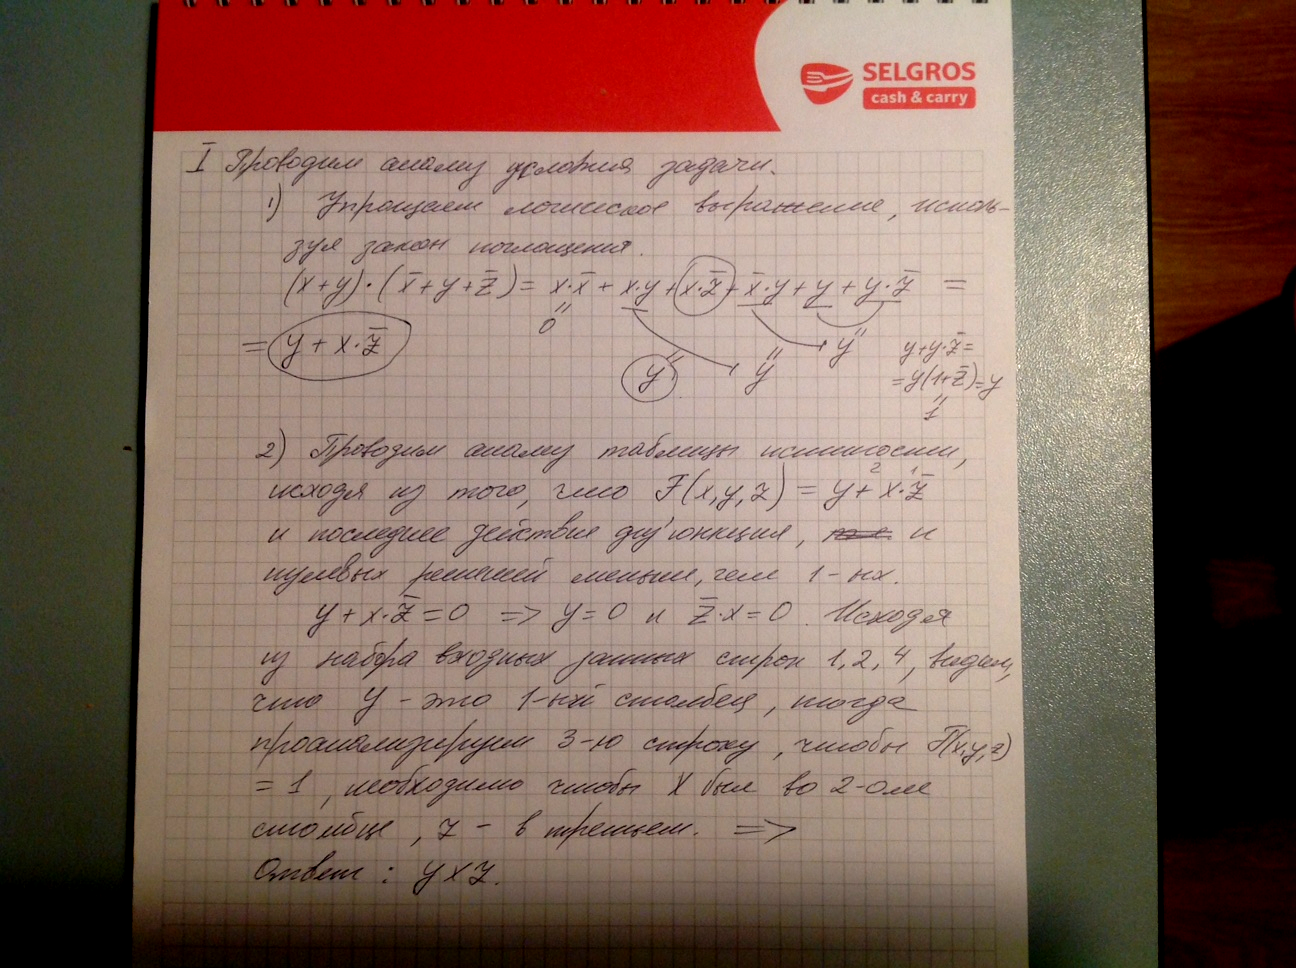 SELGROS
cash & carry
I Проводим анализ условия задачи.
1) Упрощаем логическое выражение, исполь-
зуя закон поглощения.
(x+y)·(x̄+y+z̄)= x·x̄ + x·y + x·z̄ + x̄·y + y + y·z̄ =
0
= y + x·z̄
y y y
y+y·z̄=
=y(1+z̄)=y
1
2) Проводим анализ таблицы истинности,
исходя из того, что F(x,y,z) = y + x·z̄
2 1
и последнее действие дизъюнкция, и
нулевых решений меньше, чем 1-ых.
y + x·z̄ = 0 => y=0 и z̄·x=0. Исходя
из набора входных данных строк 1,2,4, видим,
что y - это 1-ый столбец, тогда
проанализируем 3-ю строку, чтобы F(x,y,z)
= 1, необходимо чтобы x был во 2-ом
столбце, z - в третьем. =>
Ответ: y x z.